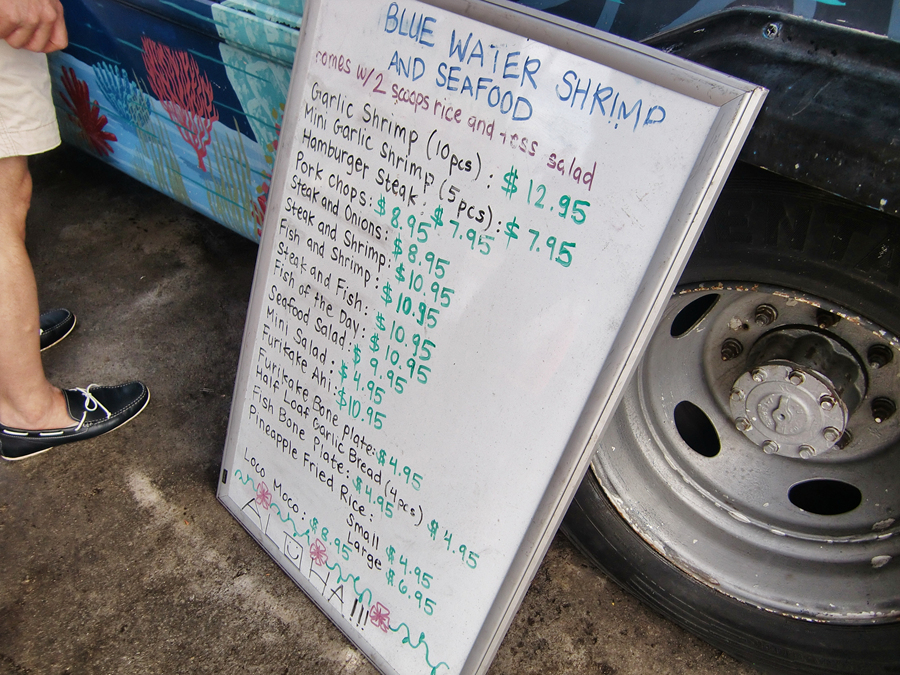 BLUE WATER SHRIMP
AND SEAFOOD
comes w/2 scoops rice and toss salad
Garlic Shrimp (10pcs): $12.95
Mini Garlic Shrimp (5pcs): $7.95
Hamburger Steak: $7.95
Pork chops: $8.95
Steak and Onions: $8.95
Steak and Shrimp: $10.95
Fish and Shrimp: $10.95
Steak and Fish: $10.95
Fish of the Day: $10.95
Seafood Salad: $9.95
Mini Salad: $4.95
Furitake Ahi: $10.95
Furitake Bone plate: $4.95
Half Loaf Garlic Bread (4pcs) $4.95
Fish Bone Plate: $4.95
Pineapple Fried Rice:
Small $4.95
Large $6.95
Loco Moco: $8.95
ALOHA!!!